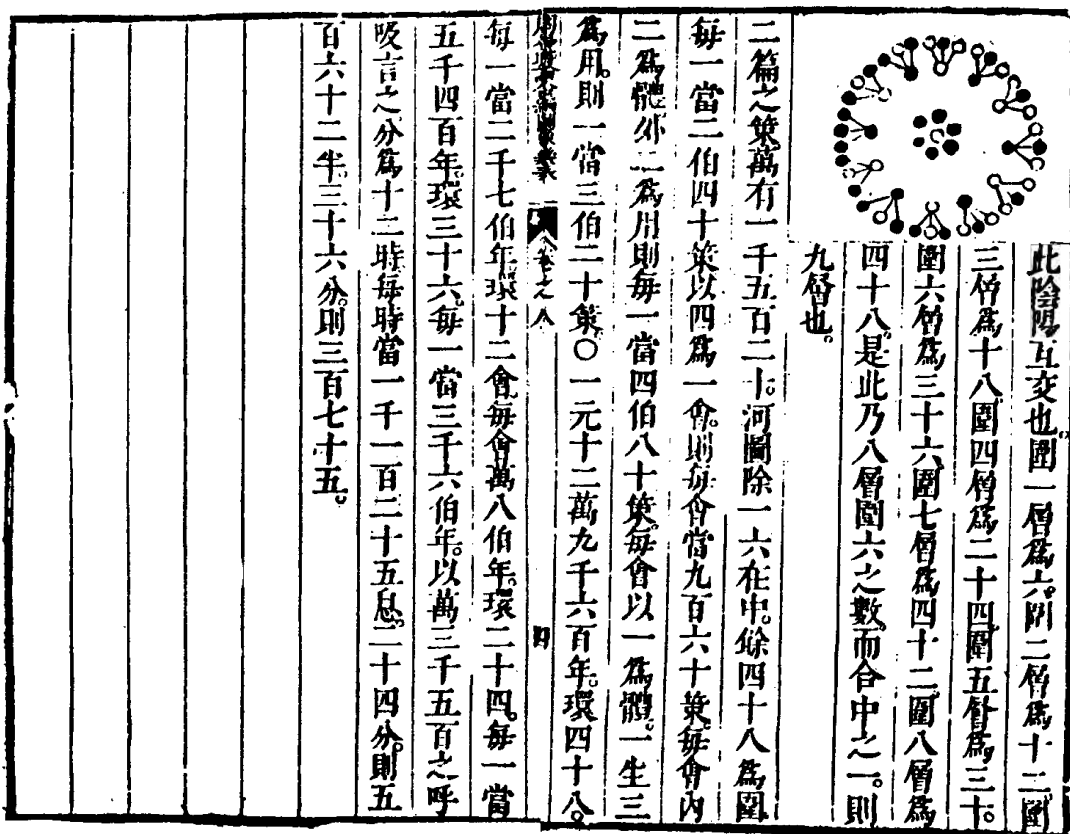 此陰陽互交也。圍一層爲六。圍二層爲十二圍
三層爲十八圍四層爲二十四圍五層爲三十。
圍六層爲三十六圍七層爲四十二圍八層爲
四十八。是此乃八層圍六之數。而合中之一。則
九層也。
二篇之策萬有一千五百二十。河圖除一六在中。餘四十八爲圍
每一當二伯四十策以四爲一會。則每會當九百六十策。每會內
二爲體外二爲用則每一當四伯八十策。每會以一爲體。一生三
爲用。則一當三伯二十策。〇一元十二萬九千六百年。環四十八。
卷之八
四
每一當二千七伯年。環十二會。每會萬八伯年。環二十四。每一當
五千四百年。環三十六。每一當三千六伯年。以萬三千五百之呼
吸言之分爲十二時。每時當一千一百二十五息。二十四分。則五
百六十二半。三十六分。則三百七十五。